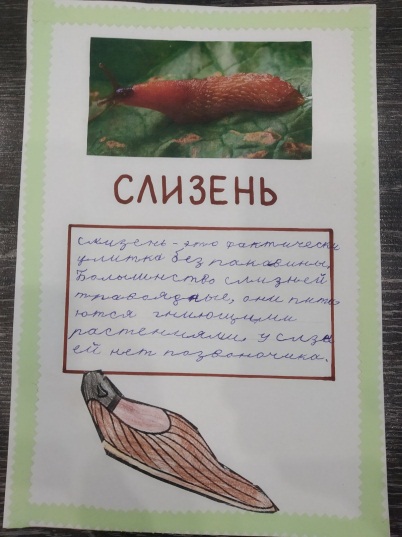 СЛИЗЕНЬ
слизень - это фактически
улитка без раковины.
Большинство слизней
травоядные, они пита
ются гниющими
растениями. У слизн
ей нет позвоночника.